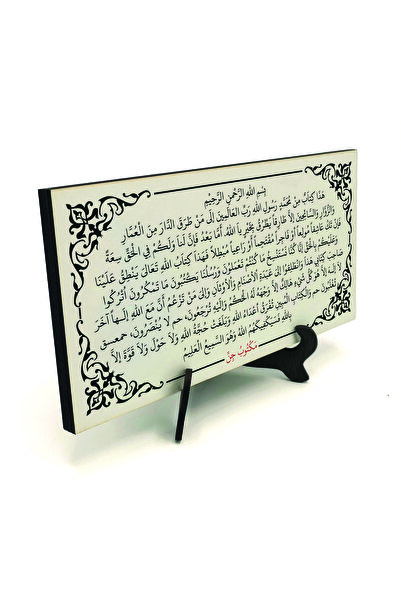 بِسْمِ اللهِ الرَّحْمٰنِ الرَّحِيْمِ
هٰذَا كِتَابٌ مِنْ مُحَمَّدٍ رَسُولِ اللهِ رَبِّ الْعَالَمِينَ اِلَى مَنْ طَرَقَ الدَّارَ مِنَ الْعُمَّارِ
وَالزُّوَّارِ وَالسَّائِحِينَ اِلاَّ طَارِقًا يَطْرُقُ بِخَيْرٍ يَا اَللهُ. اَمَّا بَعْدُ فَاِنَّ لَنَا وَلَكُمْ فِي الْحَقِّ سِعَةً
فَاِنْ تَكُ عَاشِقًا مُولِعًا اَوْ فَاجِرًا مُقْتَحِمًا اَوْ رَاعِيًا مُبْطِلاً فَهٰذَا كِتَابُ اللهِ تَعَالَى يَنْطِقُ عَلَيْنَا
وَعَلَيْكُمْ بِالْحَقِّ اِنَّا كُنَّا نَسْتَنْسِخُ مَا كُنْتُمْ تَعْمَلُونَ وَرُسُلُنَا يَكْتُبُونَ مَا تَمْكُرُونَ اُتْرُكُوا
صَاحِبَ كِتَابِي هٰذَا وَانْطَلِقُوا اِلَى عَبَدَةِ الْاَصْنَامِ وَالْاَوْثَانِ وَاِلَى مَنْ تَزْعُمُ اَنَّ مَعَ اللهِ اِلٰهًا آخَرَ
لَا اِلٰهَ اِلاَّ هُوَ كُلُّ شَيْءٍ هَالِكٌ اِلاَّ وَجْهَهُ لَهُ الْحُكْمُ وَاِلَيْهِ تُرْجَعُونَ، حم لَا يُنْصَرُونَ، حمعسق
تُغْلَبُونَ حم وَالْكِتَابِ الْمُبِينِ تَفَرَّقَ اَعْدَاءُ اللهِ وَبَلَغَتْ حُجَّةُ اللهِ وَلَا حَوْلَ وَلَا قُوَّةَ اِلاَّ
بِاللهِ فَسَيَكْفِيكَهُمُ اللهُ وَهُوَ السَّمِيعُ الْعَلِيمُ
مَكْتُوبُ جِنّ